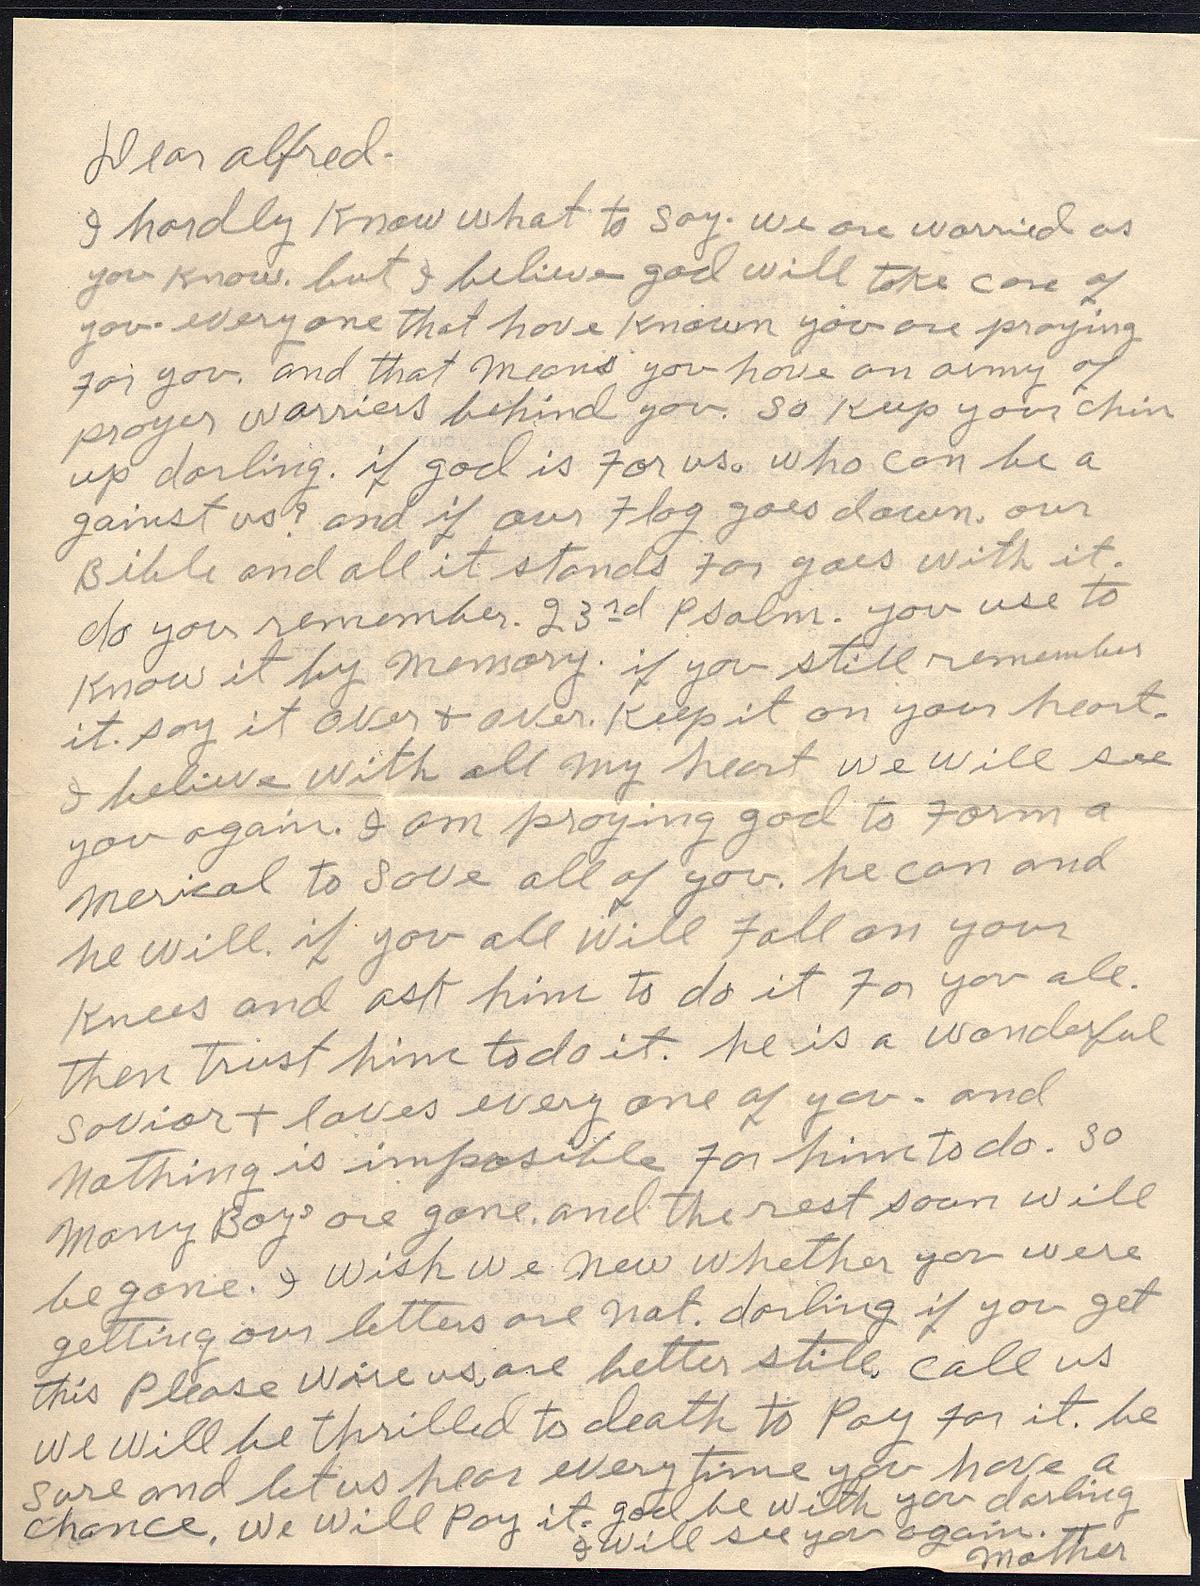 Dear alfred-
I hardly Know what to say. we are worried as
you Know. but I believe god will take care of
you. everyone that have Known you are praying
For you. and that Means you have an army of
prayer warriers behind you. so Keep your chin
up darling. if god is For us. who can be a
gainst us? and if our Flag goes down. our
Bible and all it stands For goes with it.
do you remember. 23rd Psalm. you use to
Know it by Memory. if you still remember
it. say it over + over. Keep it on your heart.
I believe with all my heart we will see
you again. I am praying god to Form a
Merical to save all of you. he can and
he will. if you all will Fall on your
Knees and ask him to do it For you all.
then trust him to do it. he is a wonderful
Savior + loves every one of you. and
Nothing is impossible For him to do. so
Many Boys are gone. and the rest soon will
be gone. I wish we new whether you were
getting our letters are not. darling if you get
this Please wire us, are better still. call us
we will be thrilled to death to Pay For it. be
sure and let us hear every time you have a
chance. we will Pay it. god be with you darling
I will see you again.
Mother